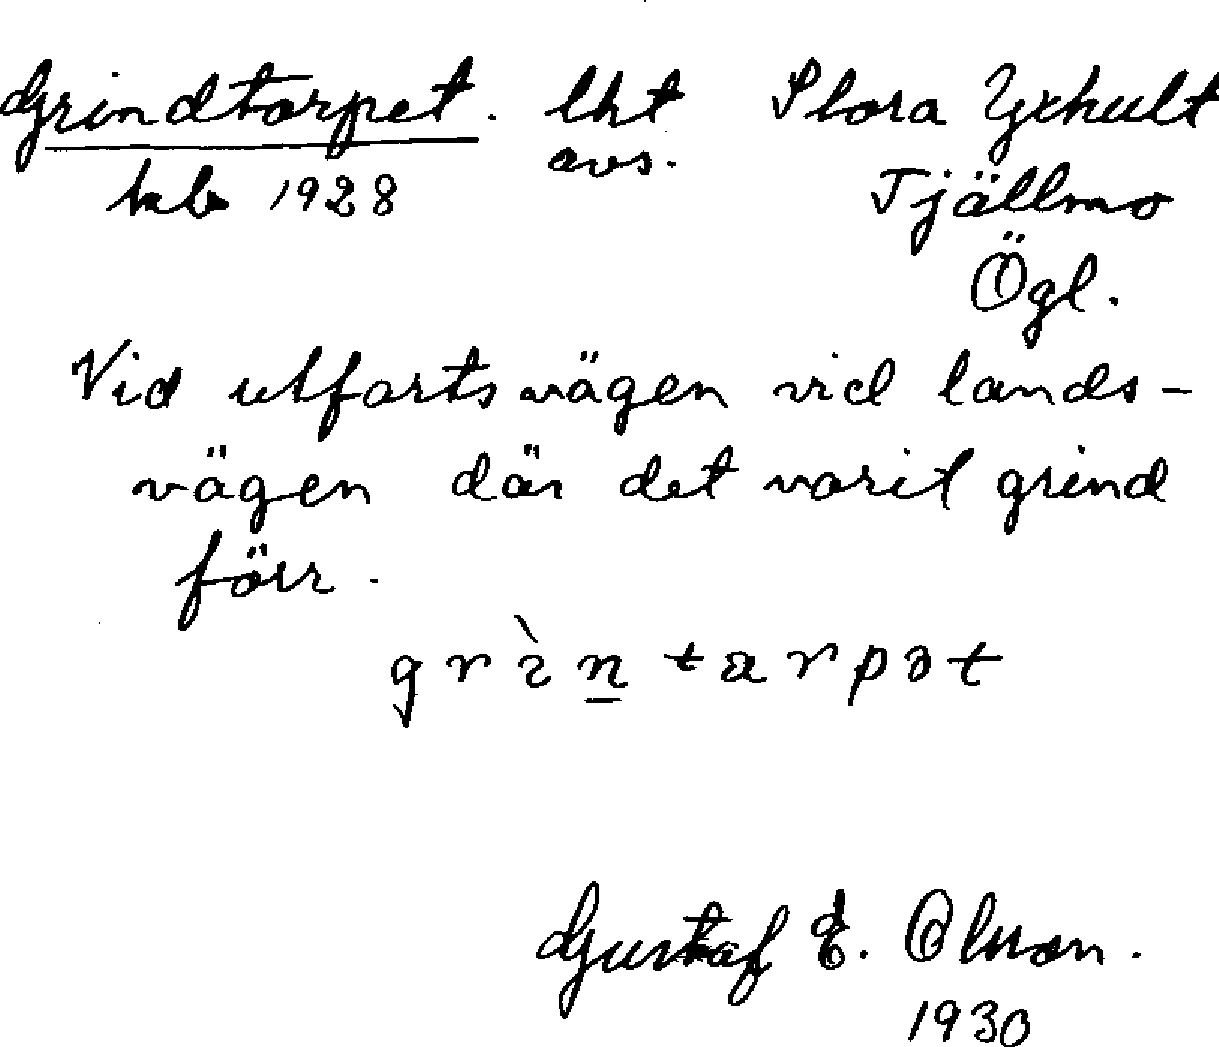 Grindtorpet. lht Stora Yxhult
avs. Tjällmo
1928
Ögl.
Vid utfartsvägen vid lands-
vägen där det varit grind
förr.
Gustaf E. Olsson.
1930